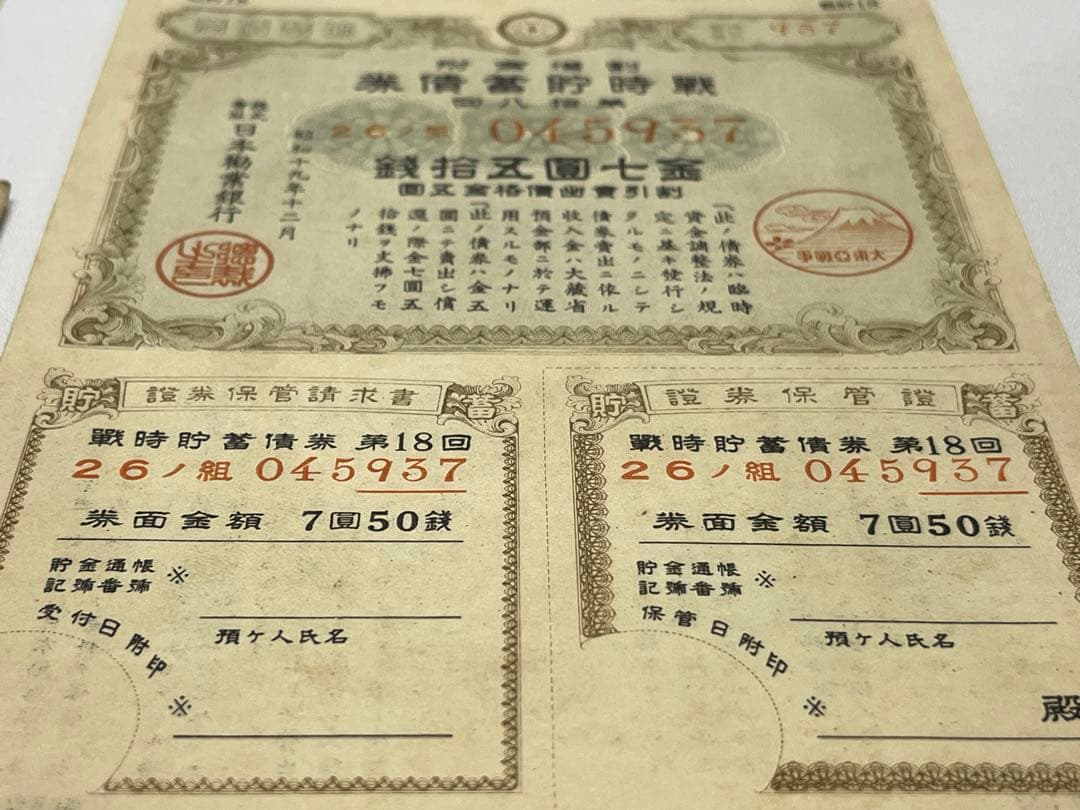 割増金附
戰時貯蓄債券
第拾八回
26ノ組 045937
金七圓五拾錢
割引賣出價格金五圓
大東亞戰爭
「此ノ債券ハ臨時
資金調整法ノ規
定ニ基キ發行シ
タルモノニシテ
債券賣出ニ依ル
收入金ハ大藏省
預金部ニ於テ運
用スルモノナリ
「此ノ債券ハ金五
圓ニテ賣出シ償
還ノ際金七圓五
拾錢ヲ支拂フモ
ノナリ
昭和十九年十二月
株式會社日本勸業銀行
貯 證券保管請求書 蓄
戰時貯蓄債券 第18回
26ノ組 045937
券面金額 7圓50錢
貯金通帳
記號番號 ※
受付日附印
預ケ人氏名
※
貯 證券保管證 蓄
戰時貯蓄債券 第18回
26ノ組 045937
券面金額 7圓50錢
貯金通帳
記號番號 ※
保管日附印
預ケ人氏名
※
殿